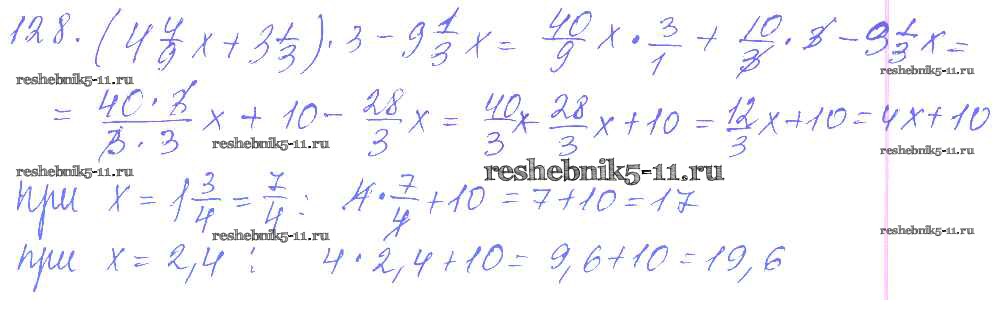 128. (4 4/9 x + 3 1/3) · 3 - 9 1/3 x = 40/9 x · 3/1 + 10/3 · 3 - 9 1/3 x =
reshebnik5-11.ru reshebnik5-11.ru
= 40·3/3·3 x + 10 - 28/3 x = 40/3 x - 28/3 x + 10 = 12/3 x + 10 = 4x + 10
reshebnik5-11.ru reshebnik5-11.ru
reshebnik5-11.ru reshebnik5-11.ru
при x = 1 3/4 = 7/4 : 4 · 7/4 + 10 = 7 + 10 = 17
reshebnik5-11.ru reshebnik5-11.ru
при x = 2,4 : 4 · 2,4 + 10 = 9,6 + 10 = 19,6